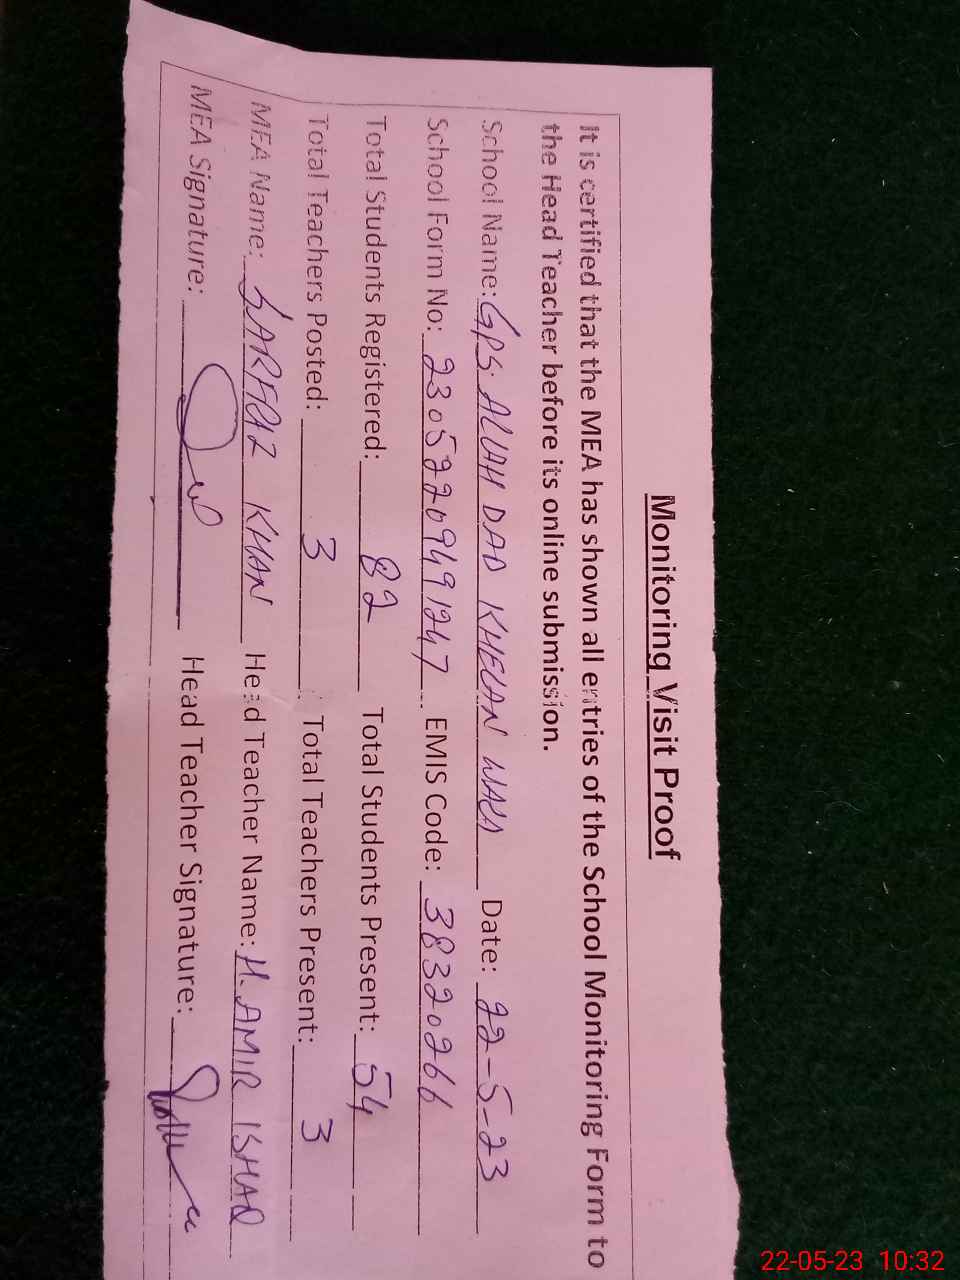 Monitoring Visit Proof
It is certified that the MEA has shown all entries of the School Monitoring Form to
the Head Teacher before its online submission.
School Name: GPS. ALLAH DAD KHELAN WALA Date: 22-5-23
School Form No: 230522094991247 EMIS Code: 38320266
Total Students Registered: 82 Total Students Present: 54
Total Teachers Posted: 3 Total Teachers Present: 3
MEA Name: SARFRAZ KHAN Head Teacher Name: H. AMIR ISHAQ
MEA Signature: Head Teacher Signature:
22-05-23 10:32